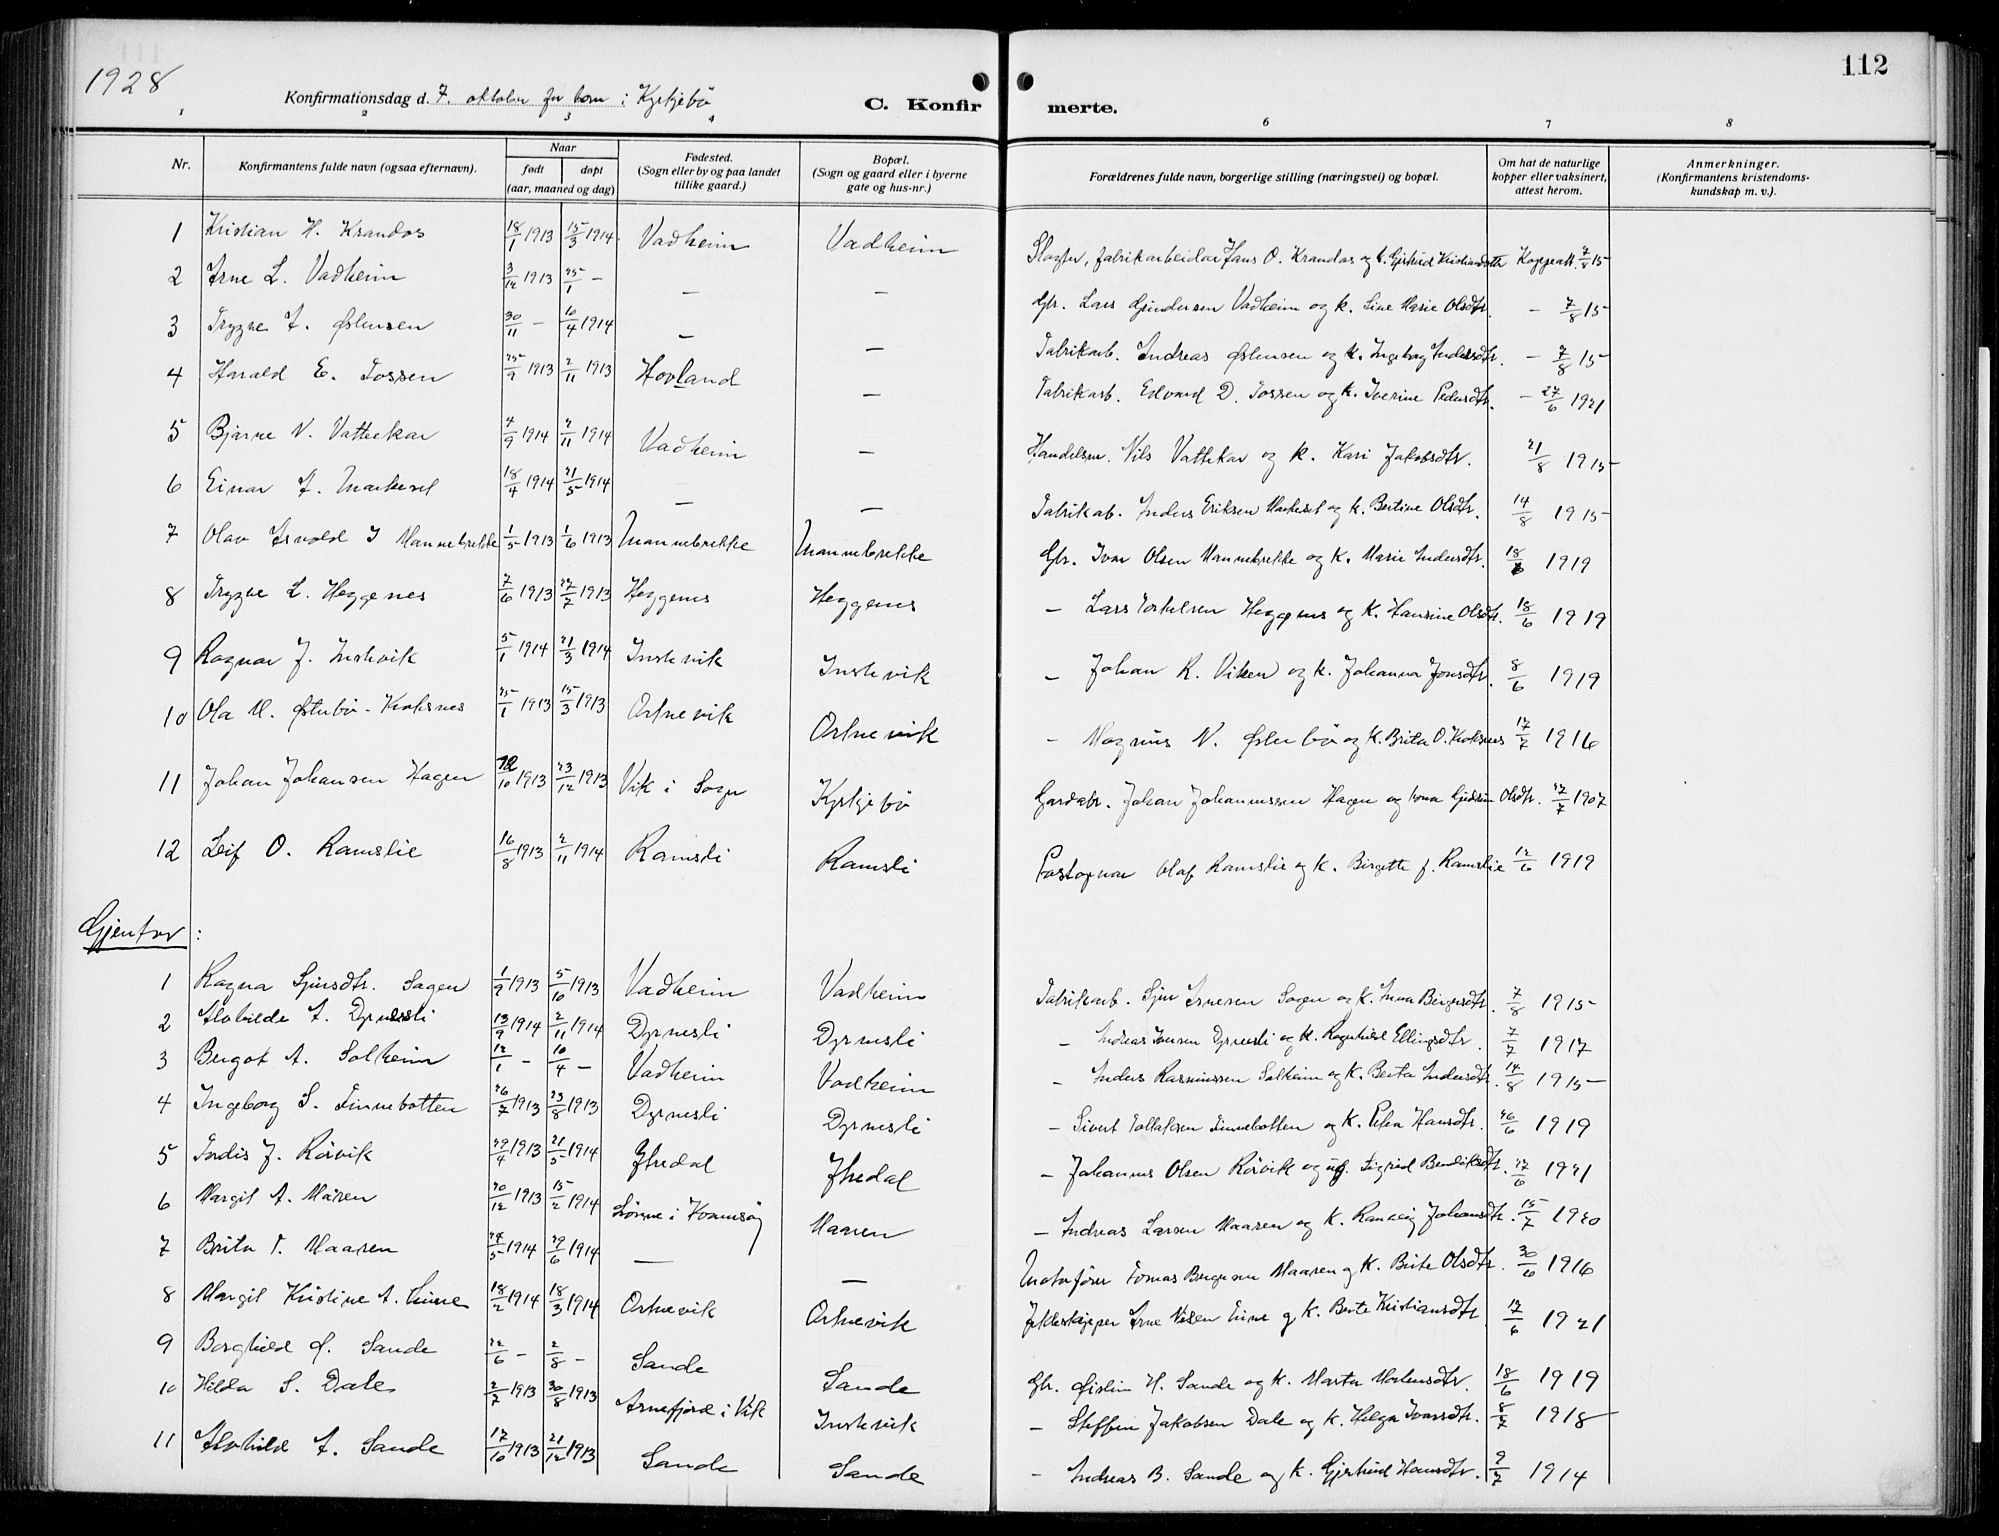 1928
112
Konfirmationsdag d. 7. oktober for born i Kyrkjebö
C. Konfirmerte.
1 2 3 4 6 7 8
Nr. Konfirmantens fulde navn (ogsaa efternavn). Naar født døpt (aar, maaned og dag) Fødested. (Sogn eller by og paa landet tillike gaard.) Bopæl. (Sogn og gaard eller i byerne gate og hus-nr.) Forældrenes fulde navn, borgerlige stilling (næringsvei) og bopæl. Om hat de naturlige kopper eller vaksinert, attest herom. Anmerkninger. (Konfirmantens kristendomskundskap m. v.).
1 Kristian H. Krandos 18/1 1913 15/3 1914 Vadheim Vadheim fabrikarbeidar Hans O. Krandos og k. Gjertrud Kristiansdtr Koppeatt. 7/8 15
2 Arne L. Vadheim 3/12 1913 25/1 — — — Gbr. Lars Gundersen Vadheim og k. Line Marie Olsdtr. — 7/8 15
3 Trygve A. Østensen 30/11 — 10/4 1914 — — Fabrikarb. Andreas Østensen og k. Ingeborg Andersdtr. — 7/8 15
4 Harald E. Tossen 25/9 1913 2/11 1913 Hovland — Fabrikarb. Edvard D. Tossen og k. Iverine Pedersdtr. — 27/6 1921
5 Bjarne N. Vattekar 4/9 1914 2/11 1914 Vadheim — Handelsm. Nils Vattekar og k. Kari Jakobsdtr. 21/8 1915
6 Einar A. Markeset 18/4 1914 21/5 1914 — — Fabrikab. Anders Eriksen Markeset og k. Bertine Olsdtr. 14/8 1915
7 Olav Arvold I Mannebrekke 1/5 1913 1/6 1913 Mannebrekke Mannebrekke Gbr. Ivar Olsen Mannebrekke og k. Marie Andersdtr. 18/6 1919
8 Trygve L. Heggenes 7/6 1913 27/7 1913 Heggenes Heggenes — Lars Torkelsen Heggenes og k. Hansine Olsdtr. 18/6 1919
9 Ragnar J. Instevik 5/1 1914 21/3 1914 Instevik Instevik — Johan R. Viken og k. Johanna Jonsdtr. 8/6 1919
10 Ola M. Østerbö - 25/1 1913 15/3 1913 Ortnevik Ortnevik — Magnus N. Østerbö og k. Brita O. 17/7 1916
11 Johan Johansen Hagen 12/10 1913 23/12 1913 Vik i Sogn Kyrkjebö Gardabr. Johan Johannessen Hagen og kona Gudrun Olsdtr. 27/7 1907
12 Leif O. Ramslie 16/8 1913 2/11 1914 Ramsli Ramsli Postopnar Olaf Ramslie og k. Birgitte f. Ramslie 12/6 1919
Gjentor:
1 Ragna Sjursdtr. Sagen 1/9 1913 5/10 1913 Vadheim Vadheim Fabrikarb. Sjur Arnesen Sagen og k. Anna Birgersdtr. 7/8 1915
2 Alvhilde A. Dyrnesli 13/9 1914 2/11 1914 Dyrnesli Dyrnesli — Andreas Dyrnesli og k. Ragnhild Ellingsdtr. 7/7 1917
3 Bergot A. Solheim 12/1 — 10/4 — Vadheim Vadheim — Anders Rasmussen Solheim og k. Berta Andersdtr. 14/8 1915
4 Ingeborg S. Finnebotten 26/7 1913 23/8 1913 Dyrnesli Dyrnesli — Sivert Tollefsen Finnebotten og k. Petra Hansdtr. 26/6 1919
5 Jordis J. Rörvik 29/4 1913 21/5 1914 Ytredal Ytredal — Johannes Olsen Rörvik og ug. Sigrid Bendiksdtr. 27/6 1921
6 Margit A. Måren 20/12 1913 15/2 1914 i Kvamsöy Maaren — Andreas Larsen Maaren og k. Ranveig Johansdtr. 15/7 1920
7 Brita T. Maaren 24/5 1914 29/6 1914 — — Motorförer Tomas Bergesen Maaren og k. Brite Olsdtr. 30/6 1916
8 Margit Kristine A. 18/2 1914 18/3 1914 Ortnevik Ortnevik Jekteskipper Arne Nilsen og k. Berte Kristiansdtr. 17/6 1921
9 Borghild Ø. Sande 22/6 — 2/8 — Sande Sande Gbr. Øistein H. Sande og k. Marta Mortensdtr. 18/6 1919
10 Hilda S. Dale 2/7 1913 30/8 1913 Arnefjord i Vik Instevik — Steffen Jakobsen Dale og k. Helga Ivarsdtr. 8/7 1918
11 Alvhild A. Sande 17/10 1913 21/12 1913 Sande Sande — Andreas B. Sande og k. Gjertrud Hansdtr. 9/7 1914